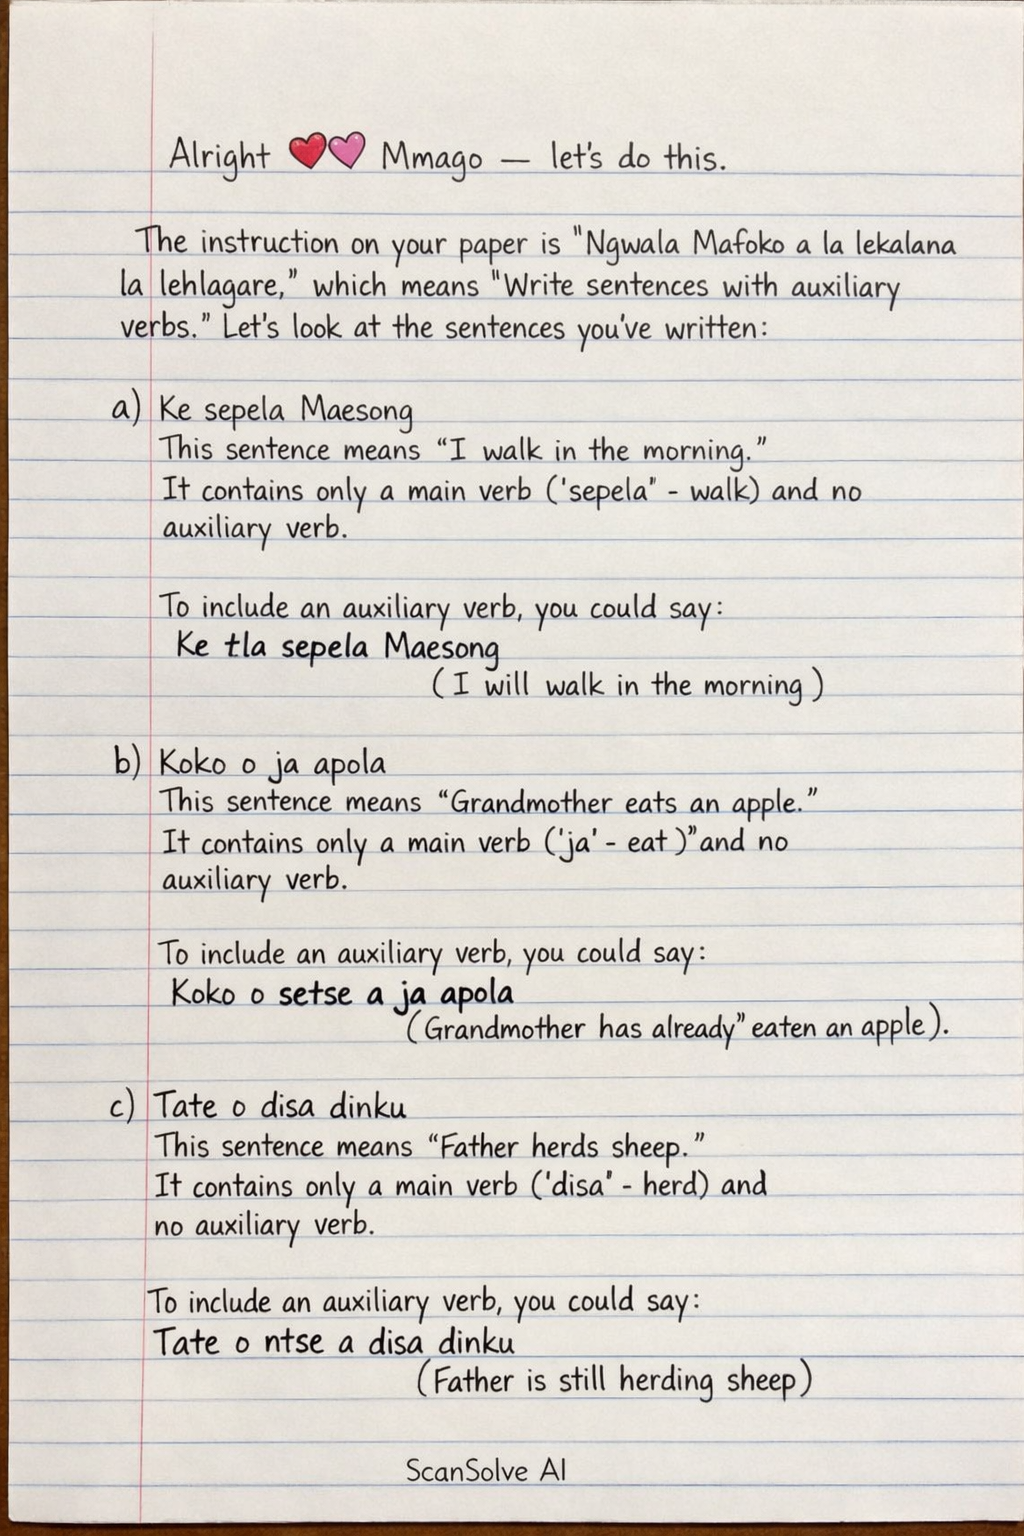 Alright ❤️🩷 Mmago — let's do this.
The instruction on your paper is "Ngwala Mafoko a la lekalana
la lehlagare," which means "Write sentences with auxiliary
verbs." Let's look at the sentences you've written:
a) Ke sepela Maesong
This sentence means "I walk in the morning."
It contains only a main verb ('sepela" - walk) and no
auxiliary verb.
To include an auxiliary verb, you could say:
Ke tla sepela Maesong
(I will walk in the morning)
b) Koko o ja apola
This sentence means "Grandmother eats an apple."
It contains only a main verb ('ja' - eat )"and no
auxiliary verb.
To include an auxiliary verb, you could say:
Koko o setse a ja apola
(Grandmother has already" eaten an apple).
c) Tate o disa dinku
This sentence means "Father herds sheep."
It contains only a main verb ('disa' - herd) and
no auxiliary verb.
To include an auxiliary verb, you could say:
Tate o ntse a disa dinku
(Father is still herding sheep)
ScanSolve AI